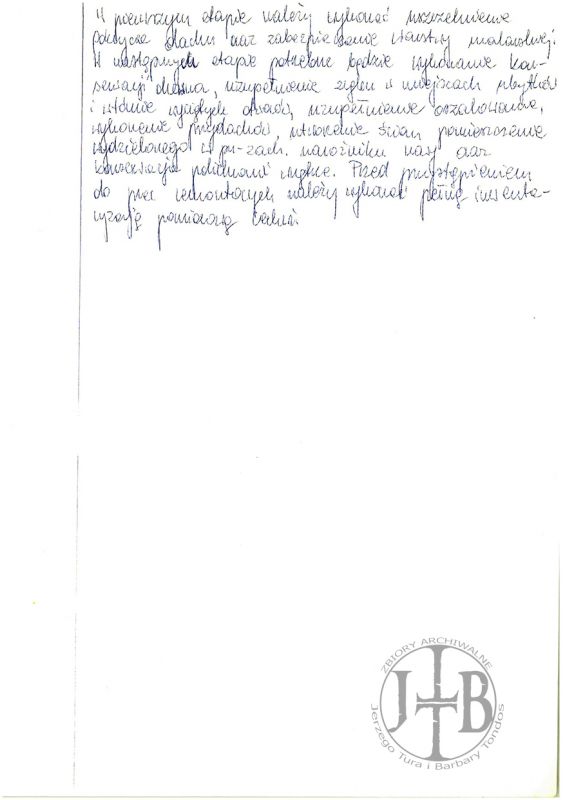 W pierwszym etapie należy wykonać uszczelnienie
pokrycia dachu oraz zabezpieczenie warstwy malarskiej.
W następnym etapie potrzebne będzie wykonanie kon-
serwacji drewna, uzupełnienie zrębu w miejscach ubytków
i wtórnie wyciętych otworów, uzupełnienie oszalowania,
wykonanie przydachów, utworzenie ścian pomieszczenia
wydzielonego w pn-zach. narożniku nawy oraz
konserwacja polichromii wnętrza. Przed przystąpieniem
do prac remontowych należy wykonać pełną inwenta-
ryzację pomiarową cerkwi.
ZBIORY ARCHIWALNE
JTB
Jerzego Tura i Barbary Tondos